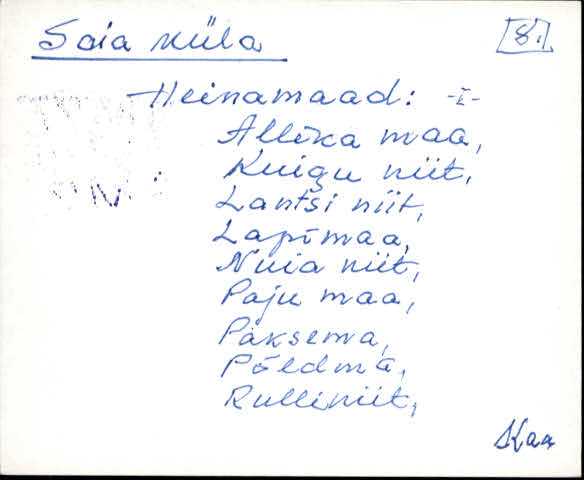 Saia küla
[8.]
Heinamaad: -I-
Allika maa,
Kuigu niit,
Lantsi niit,
Lapimaa,
Nuia niit,
Paju maa,
Paksema,
Põldma,
Rulliniit,